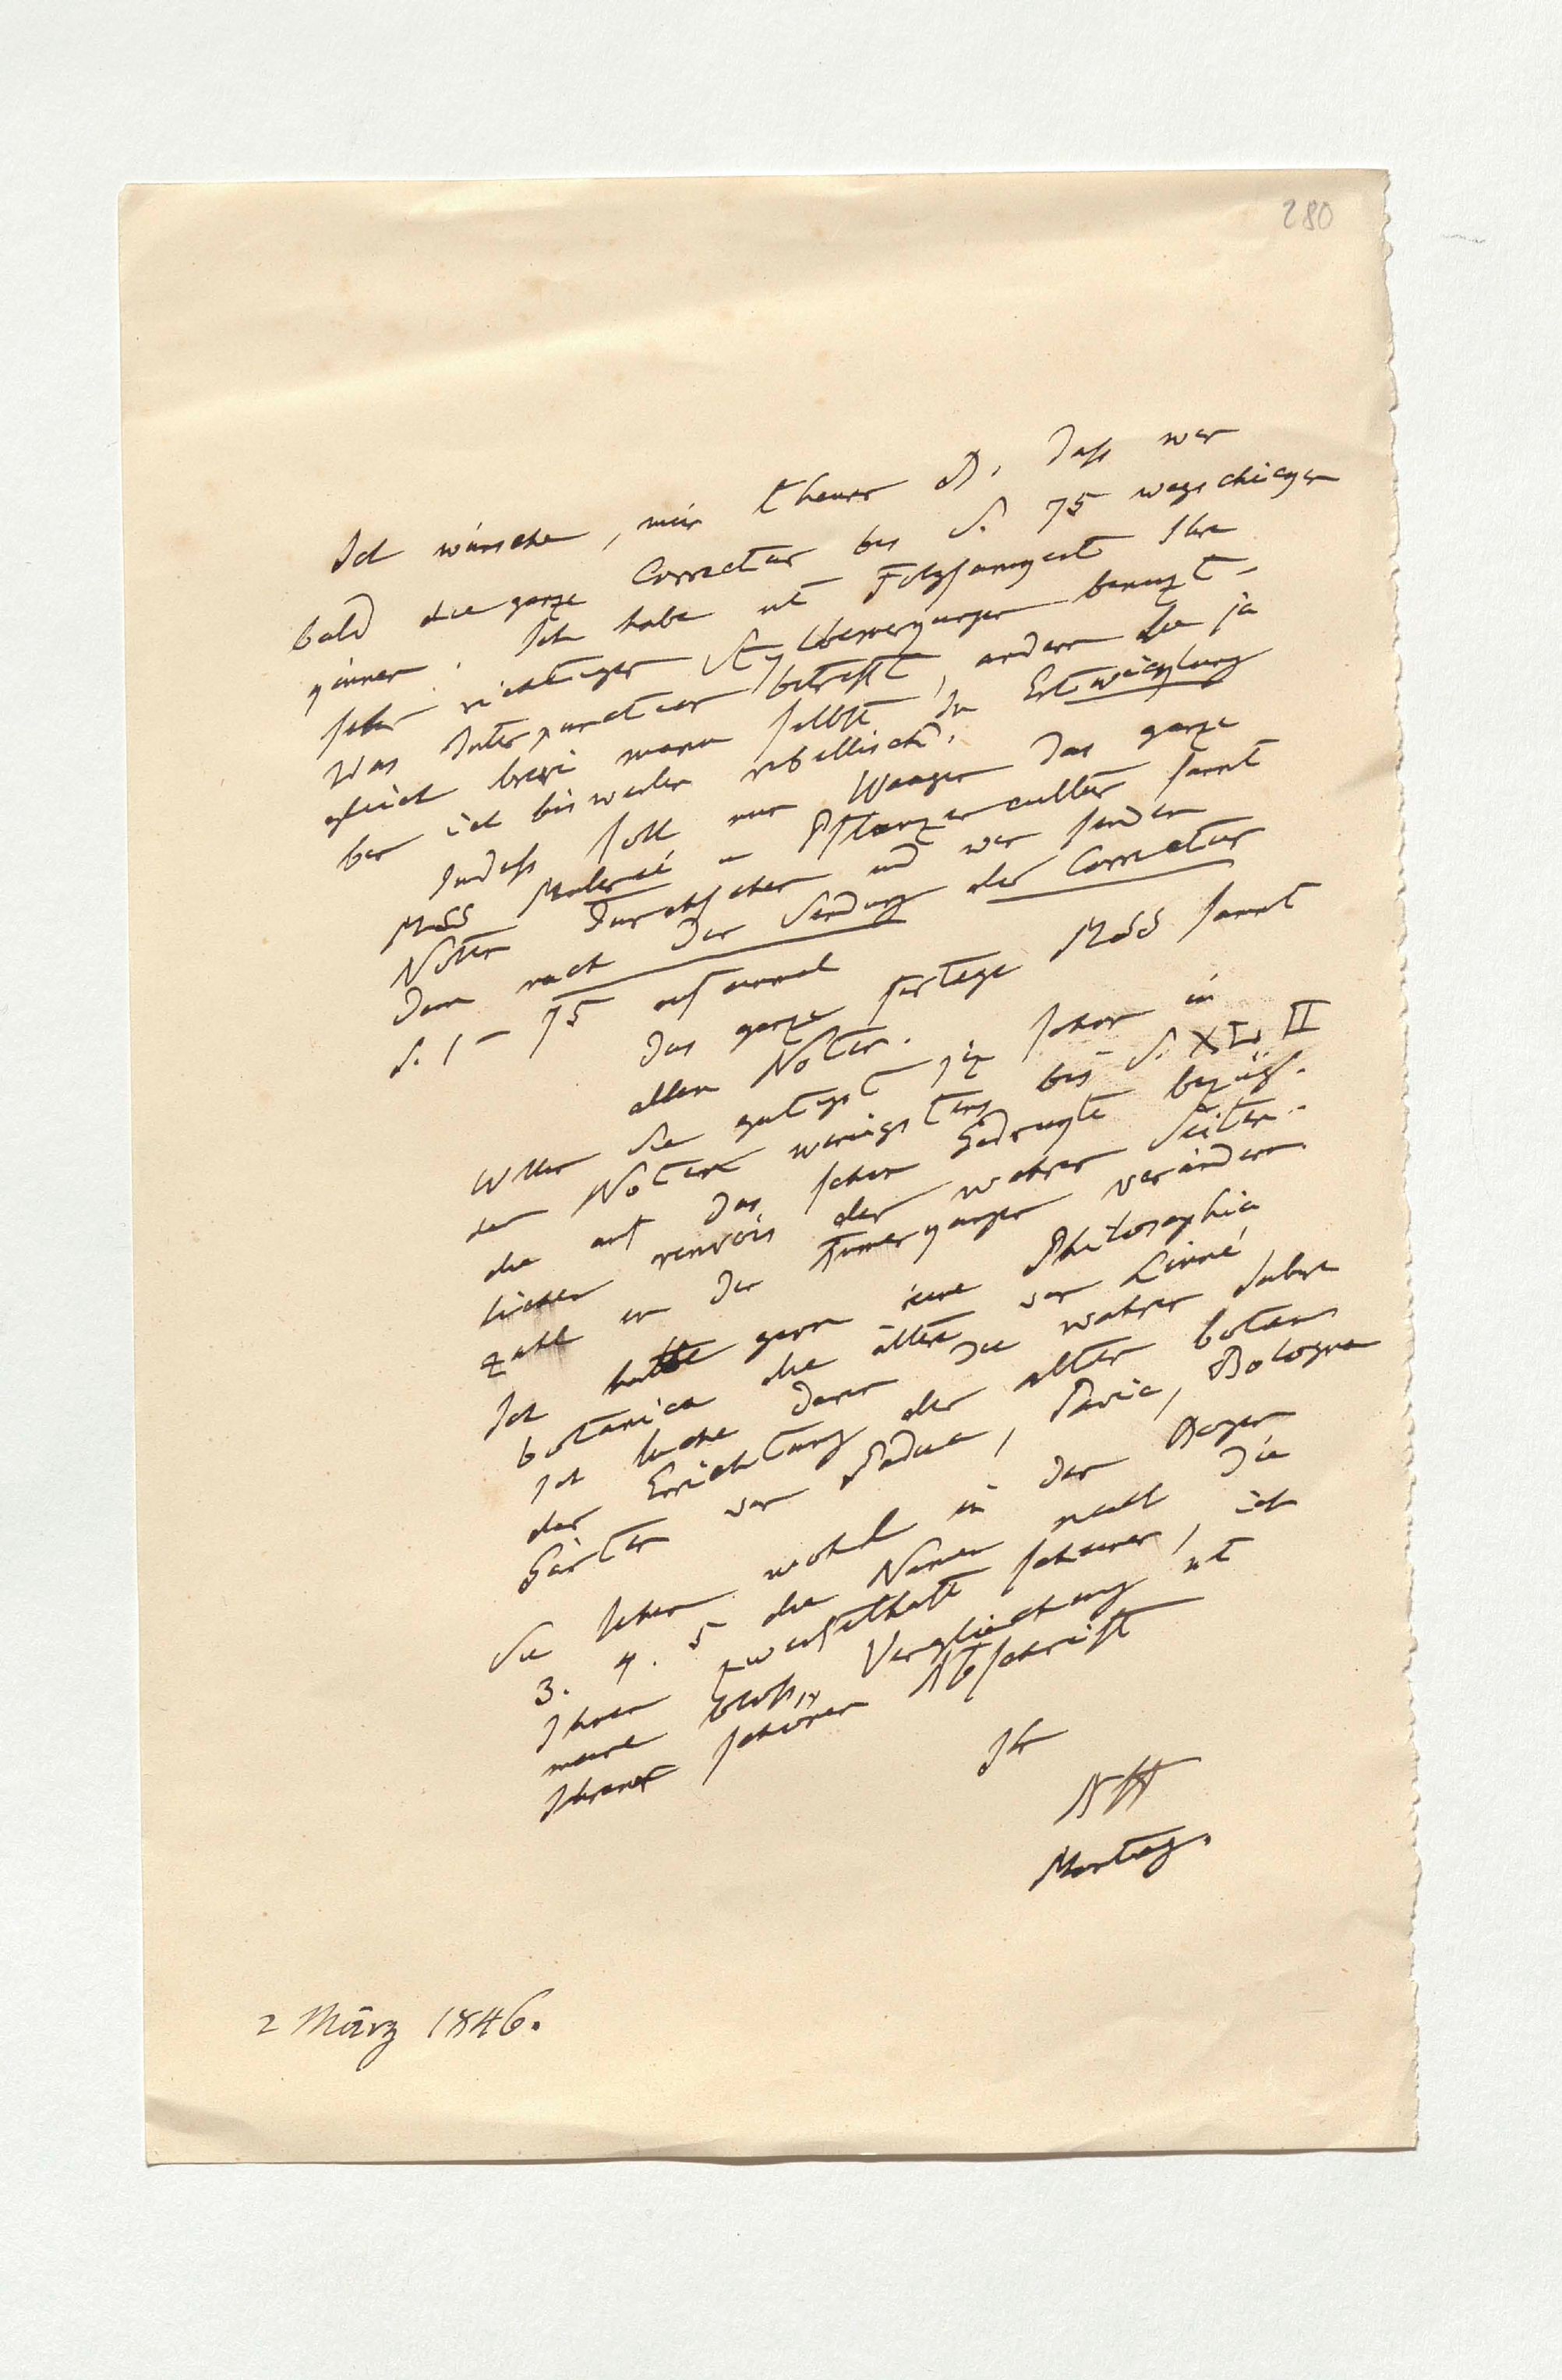 280
Ich wünsche, mein theurer B, daß wir
bald die ganze Correctur bis S. 75 wegschicken
können. Ich habe mit Folgsamkeit Ihre
sehr richtigen Stylbemerkungen benuzt –
was Interpunction betrifft, andern die ja
gleich brevi manu selbst. In Entwicklung
bin ich bisweilen rebellisch.
Indeß soll nun Waagen das ganze
MSS Malerei u Pflanzencultur samt
Noten durchsehen und wir senden
dann nach der Sendung der Correctur
S. 1 – 75 auf einmal
das ganze fertige MSS samt
allen Noten.
Wollen Sie gütigst jezt schon in
den Noten wenigstens bis S. XLII
die auf das schon Gedruckte bezüg-
lichen renvois der wahren Seiten-
zahl in den Anmerkungen verändern
Ich hatte gern eine Philosophia
botanica die ältere von Linné,
Ich suche darin die wahren Jahre
der Errichtung der alten botan
Gärten von Padua, Pavia, Bologna
Sie sehen wohl in den Bogen
3. 4. 5 die Namen nach die
Ihnen zweifelhaft scheinen, ich
meine bloß Vergleichung mit
Ihrer schönen Abschrift
Ihr
AHt
Montag.
2 März 1846.